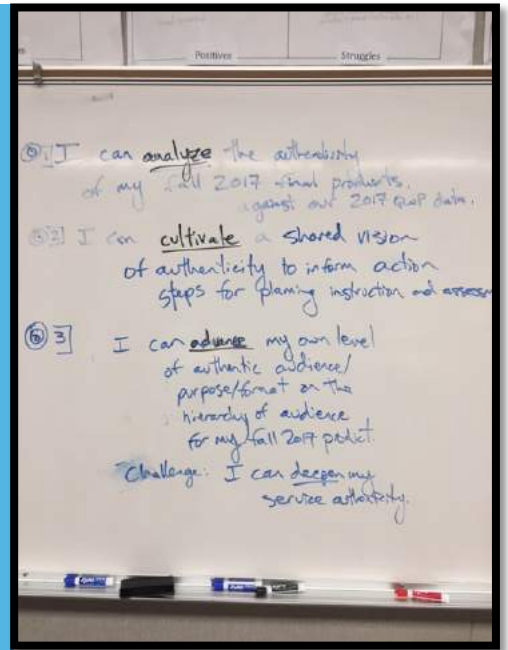 Positives Struggles
1] I can analyze the authenticity
of my fall 2017 final products,
against our 2017 QWP data.
2] I can cultivate a shared vision
of authenticity to inform action
steps for planning instruction and assessm
3] I can advance my own level
of authentic audience/
purpose/format on the
hierarchy of audience
for my fall 2017 product.
Challenge: I can deepen my
service authenticity.